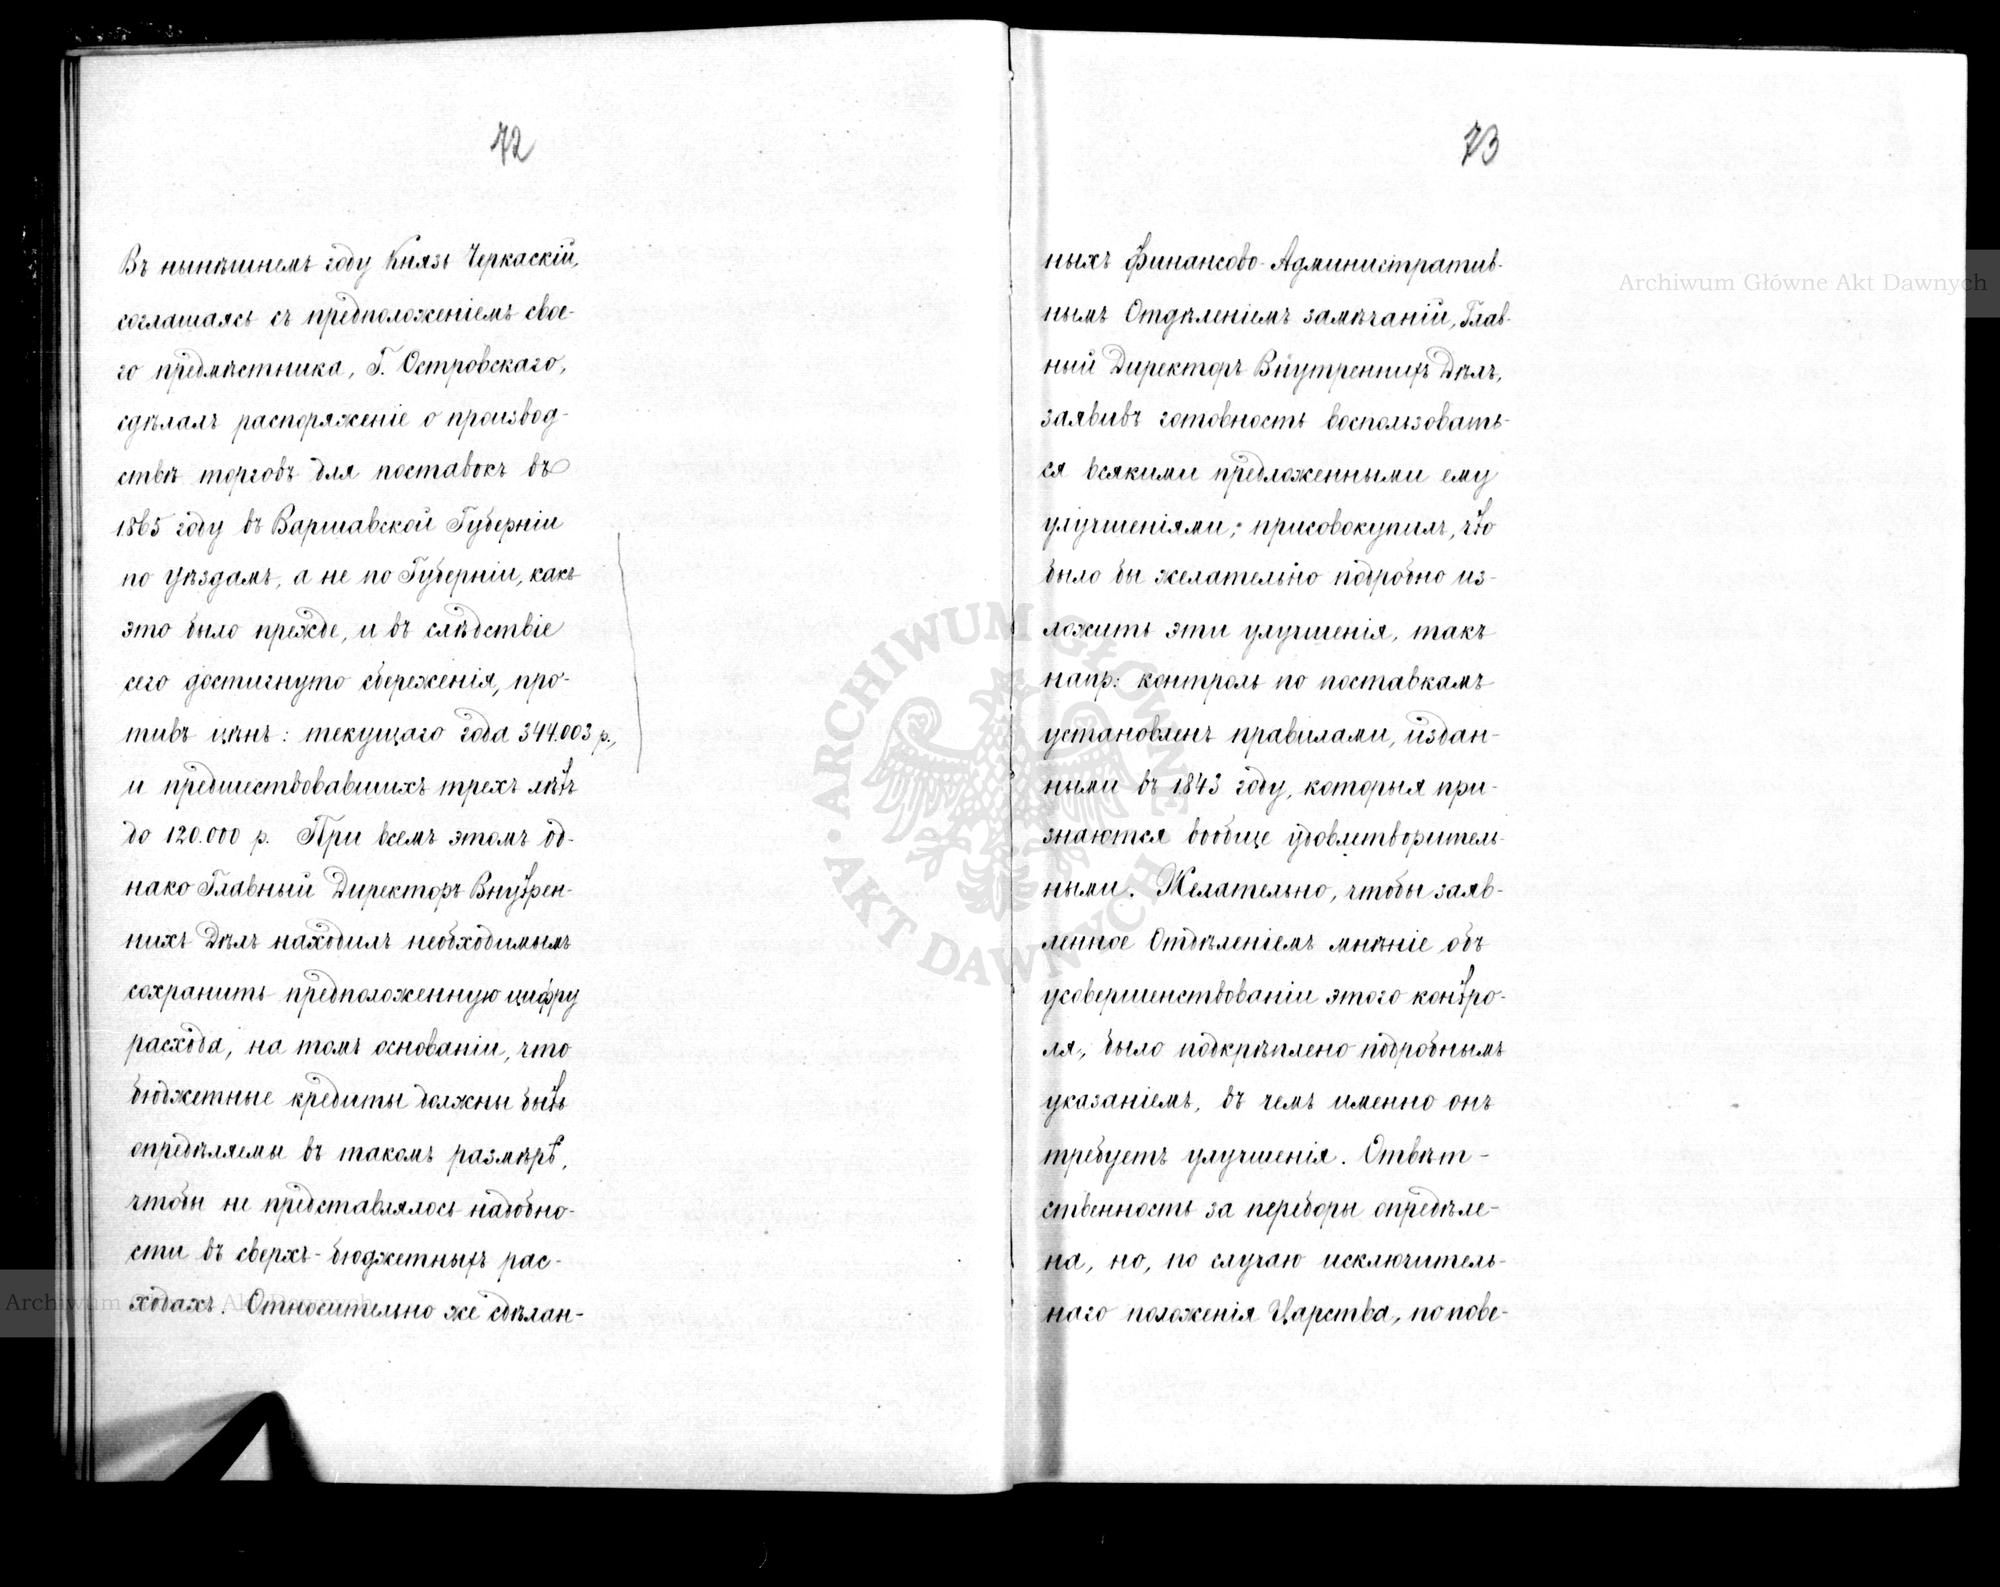 72
Въ нынѣшнемъ году Князь Черкаскій,
соглашаясь съ предположеніемъ свое-
го предмѣстника, Г. Островскаго,
сдѣлалъ распоряженіе о производ-
ствѣ торговъ для поставокъ въ
1865 году въ Варшавской Губерніи
по уѣздамъ, а не по Губерніи, какъ
это было прежде, и въ слѣдствіе
сего достигнуто сбереженія, про-
тивъ цѣнъ: текущаго года 344.003 р.,
и предшествовавшихъ трехъ лѣтъ
до 120.000 р. При всемъ этомъ од-
нако Главный Директоръ Внутрен-
нихъ Дѣлъ находилъ необходимымъ
сохранить предположенную цифру
расхода, на томъ основаніи, что
бюджетные кредиты должны быть
опредѣляемы въ такомъ размѣрѣ,
чтобы не представлялось надобно-
сти въ сверхъ-бюджетныхъ рас-
ходахъ. Относительно же сдѣлан-
73
ныхъ Финансово-Административ-
нымъ Отдѣленіемъ замѣчаній, Глав-
ный Директоръ Внутреннихъ Дѣлъ,
заявивъ готовность воспользовать-
ся всякими предложенными ему
улучшеніями, присовокупилъ, что
было бы желательно подробно из-
ложить эти улучшенія, такъ
напр: контроль по поставкамъ
установленъ правилами, издан-
ными въ 1843 году, которыя при-
знаются вообще удовлетворитель-
ными. Желательно, чтобы заяв-
ленное Отдѣленіемъ мнѣніе объ
усовершенствованіи этого контро-
ля, было подкрѣплено подробнымъ
указаніемъ, въ чемъ именно онъ
требуетъ улучшенія. Отвѣт-
ственность за переборы опредѣле-
на, но, по случаю исключитель-
наго положенія Царства, по пове-
Archiwum Główne Akt Dawnych
ARCHIWUM GŁÓWNE • AKT DAWNYCH •
Archiwum Główne Akt Dawnych